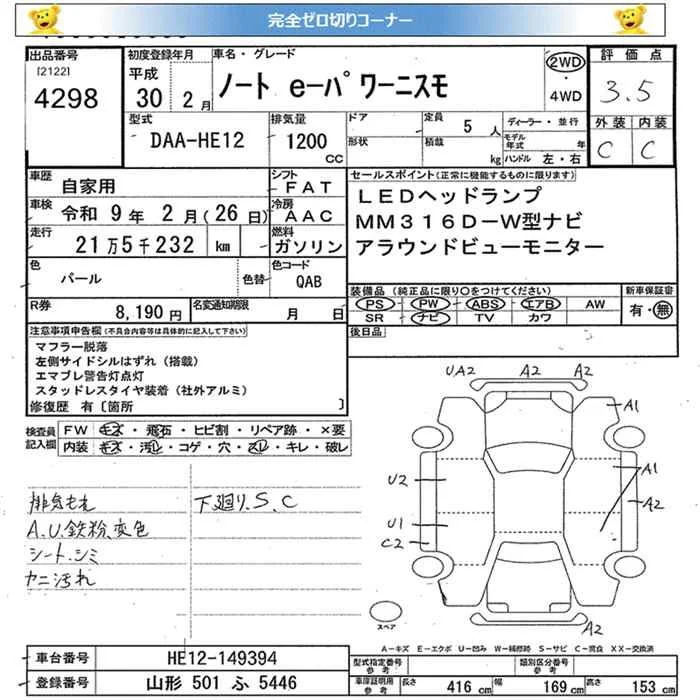 完全ゼロ切りコーナー
出品番号
[2122]
4298
初度登録年月
平成
30年 2月
車名・グレード
ノート e-パワーニスモ
2WD
・
4WD
評価点
3.5
型式
DAA-HE12
排気量
1200
CC
ドア
形状
定員
5 人
積載
kg
ディーラー・並行
モデル年式 年
ハンドル 左・右
外装 内装
C C
車歴
自家用
シフト
FAT
車検
令和 9年 2月(26日)
冷房
AAC
走行
21万5千232 km
燃料
ガソリン
色
パール
色替
色コード
QAB
R券
8,190円
名変通知期限
月 日
セールスポイント(正常に機能するものに限ります)
LEDヘッドランプ
MM316D-W型ナビ
アラウンドビューモニター
装備品(純正品に限り○をつけてください)
PS PW ABS エアB AW
SR ナビ TV カワ
新車保証書
有・無
後日品
注意事項申告欄(不具合内容等は具体的に記入して下さい)
マフラー脱落
左側サイドシルはずれ(搭載)
エマブレ警告灯点灯
スタッドレスタイヤ装着(社外アルミ)
修復歴 有〔箇所 〕
検査員
記入欄
FW キズ・飛石・ヒビ割・リペア跡・×要
内装 キズ・汚レ・コゲ・穴・スレ・キレ・破レ
排気もれ
A.U.鉄粉、変色
シート、シミ
ヤニ汚れ
下廻り、S、C
UA2 A2 A2
A1
U2
A1
A2
U1
C2
A2
スペア
A-キズ E-エクボ U-凹み W-補修跡 S-サビ C-腐食 XX-交換済
車台番号
HE12-149394
登録番号
山形 501 ふ 5446
型式指定番号
参考
類別区分番号
参考
車庫証明用
参考
長さ 416 cm 幅 169 cm 高さ 153 cm